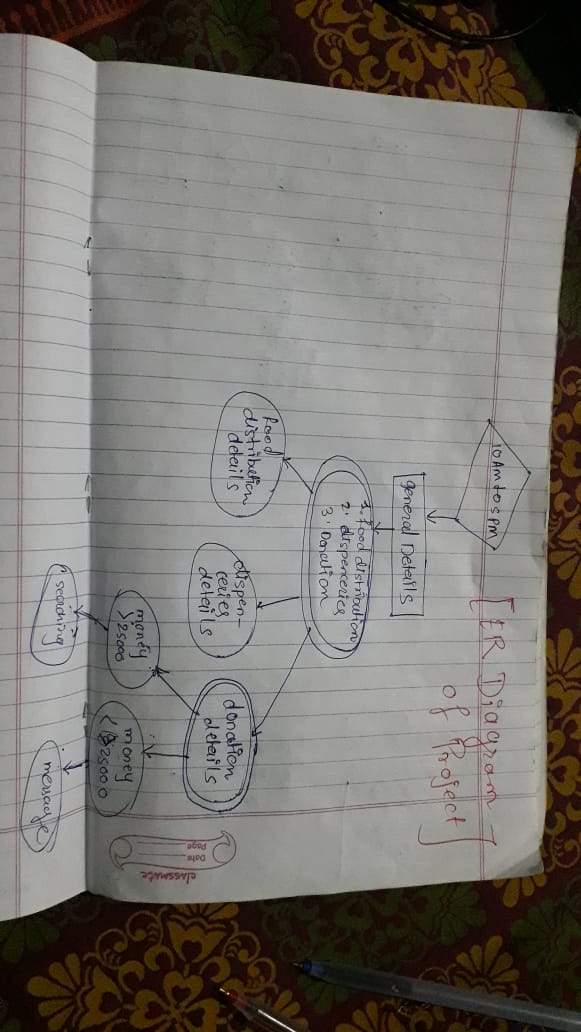 [ER Diagram -
of Project]
10 Am to 5 pm
general Details
1. food distribution
2. dispenceries
3. Donation
food
distribution
details
dispen-
ceries
details
donation
details
money
>25000
money
<25000
searching
message
classmate
Date
Page